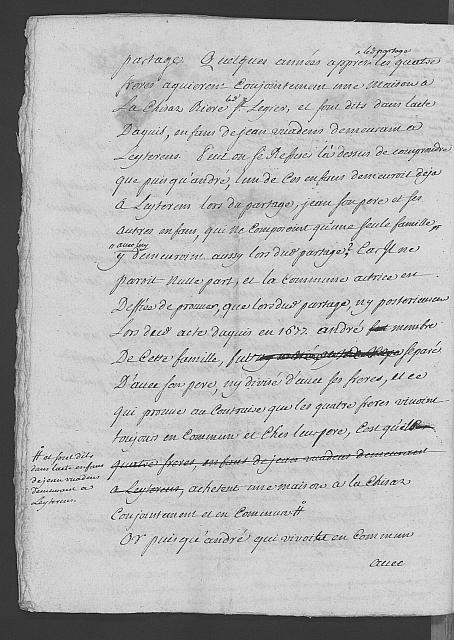 x led. partage
partage. Quelques années apprés les quatre
freres aquierent Conjointement une Maison a
La Chiraz Riere led. St. Legier, et sont dits dans lacte
Daquis, enfans de jean viuadens demeurant a
Leyterens. Peut on se Refuser la dessus de comprendre
que puisqu'andré, l'un de Ces enfans demeuroit deja
a Leyterens lors du partage, jean son pere et ses
autres enfans, qui ne Composoient qu'une seule famille
avec luy
y demeuroient aussy lors dud. partage? Car Il ne
paroit Nulle part, et la Commune actrice est en
Deffiée de prouver, que lors dud. partage, ny posterieurement
Lors dud. acte daquis en 1677. andré membre
De Cette famille, fut separé
D'avec son pere, ny divisé d'avec ses freres, et ce
qui prouve au Contraire que les quatre freres vivoient
toujour en Commun et Chés leur pere, C'est que les
quatre freres, enfans de jean viuadens demeurant
a Leyterens, achetent une maison a la Chiraz
Conjointement et en Commun #
# et sont dits
dans lacte enfans
de jean viuadens
demeurant a
Leyterens.
Or puisqu'andré qui vivoit en Commun
avec